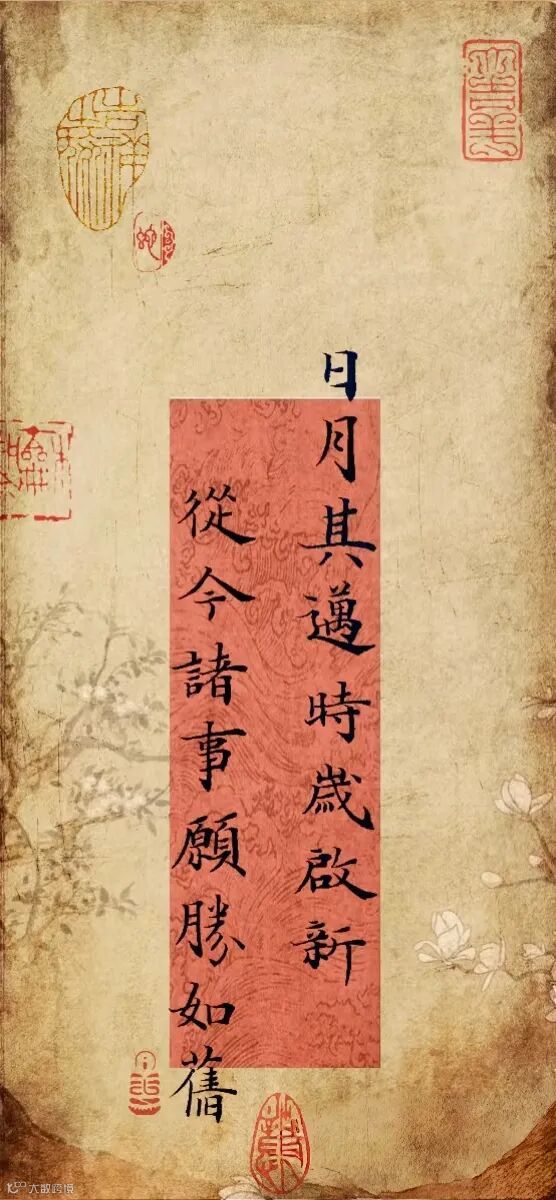 日月其邁時歲啟新
從今諸事願勝如舊
大數跨境